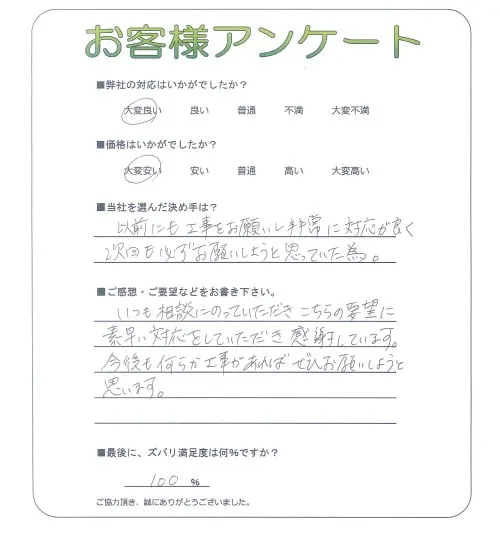 お客様アンケート
■弊社の対応はいかがでしたか？
大変良い 良い 普通 不満 大変不満
■価格はいかがでしたか？
大変安い 安い 普通 高い 大変高い
■当社を選んだ決め手は？
以前にも工事をお願いし非常に対応が良く
次回も必ずお願いしようと思っていた為。
■ご感想・ご要望などをお書き下さい。
いつも相談にのっていただき こちらの要望に
素早い対応をしていただき 感謝しています。
今後も何らか工事があれば ぜひお願いしようと
思います。
■最後に、ズバリ満足度は何%ですか？
100 %
ご協力頂き、誠にありがとうございました。